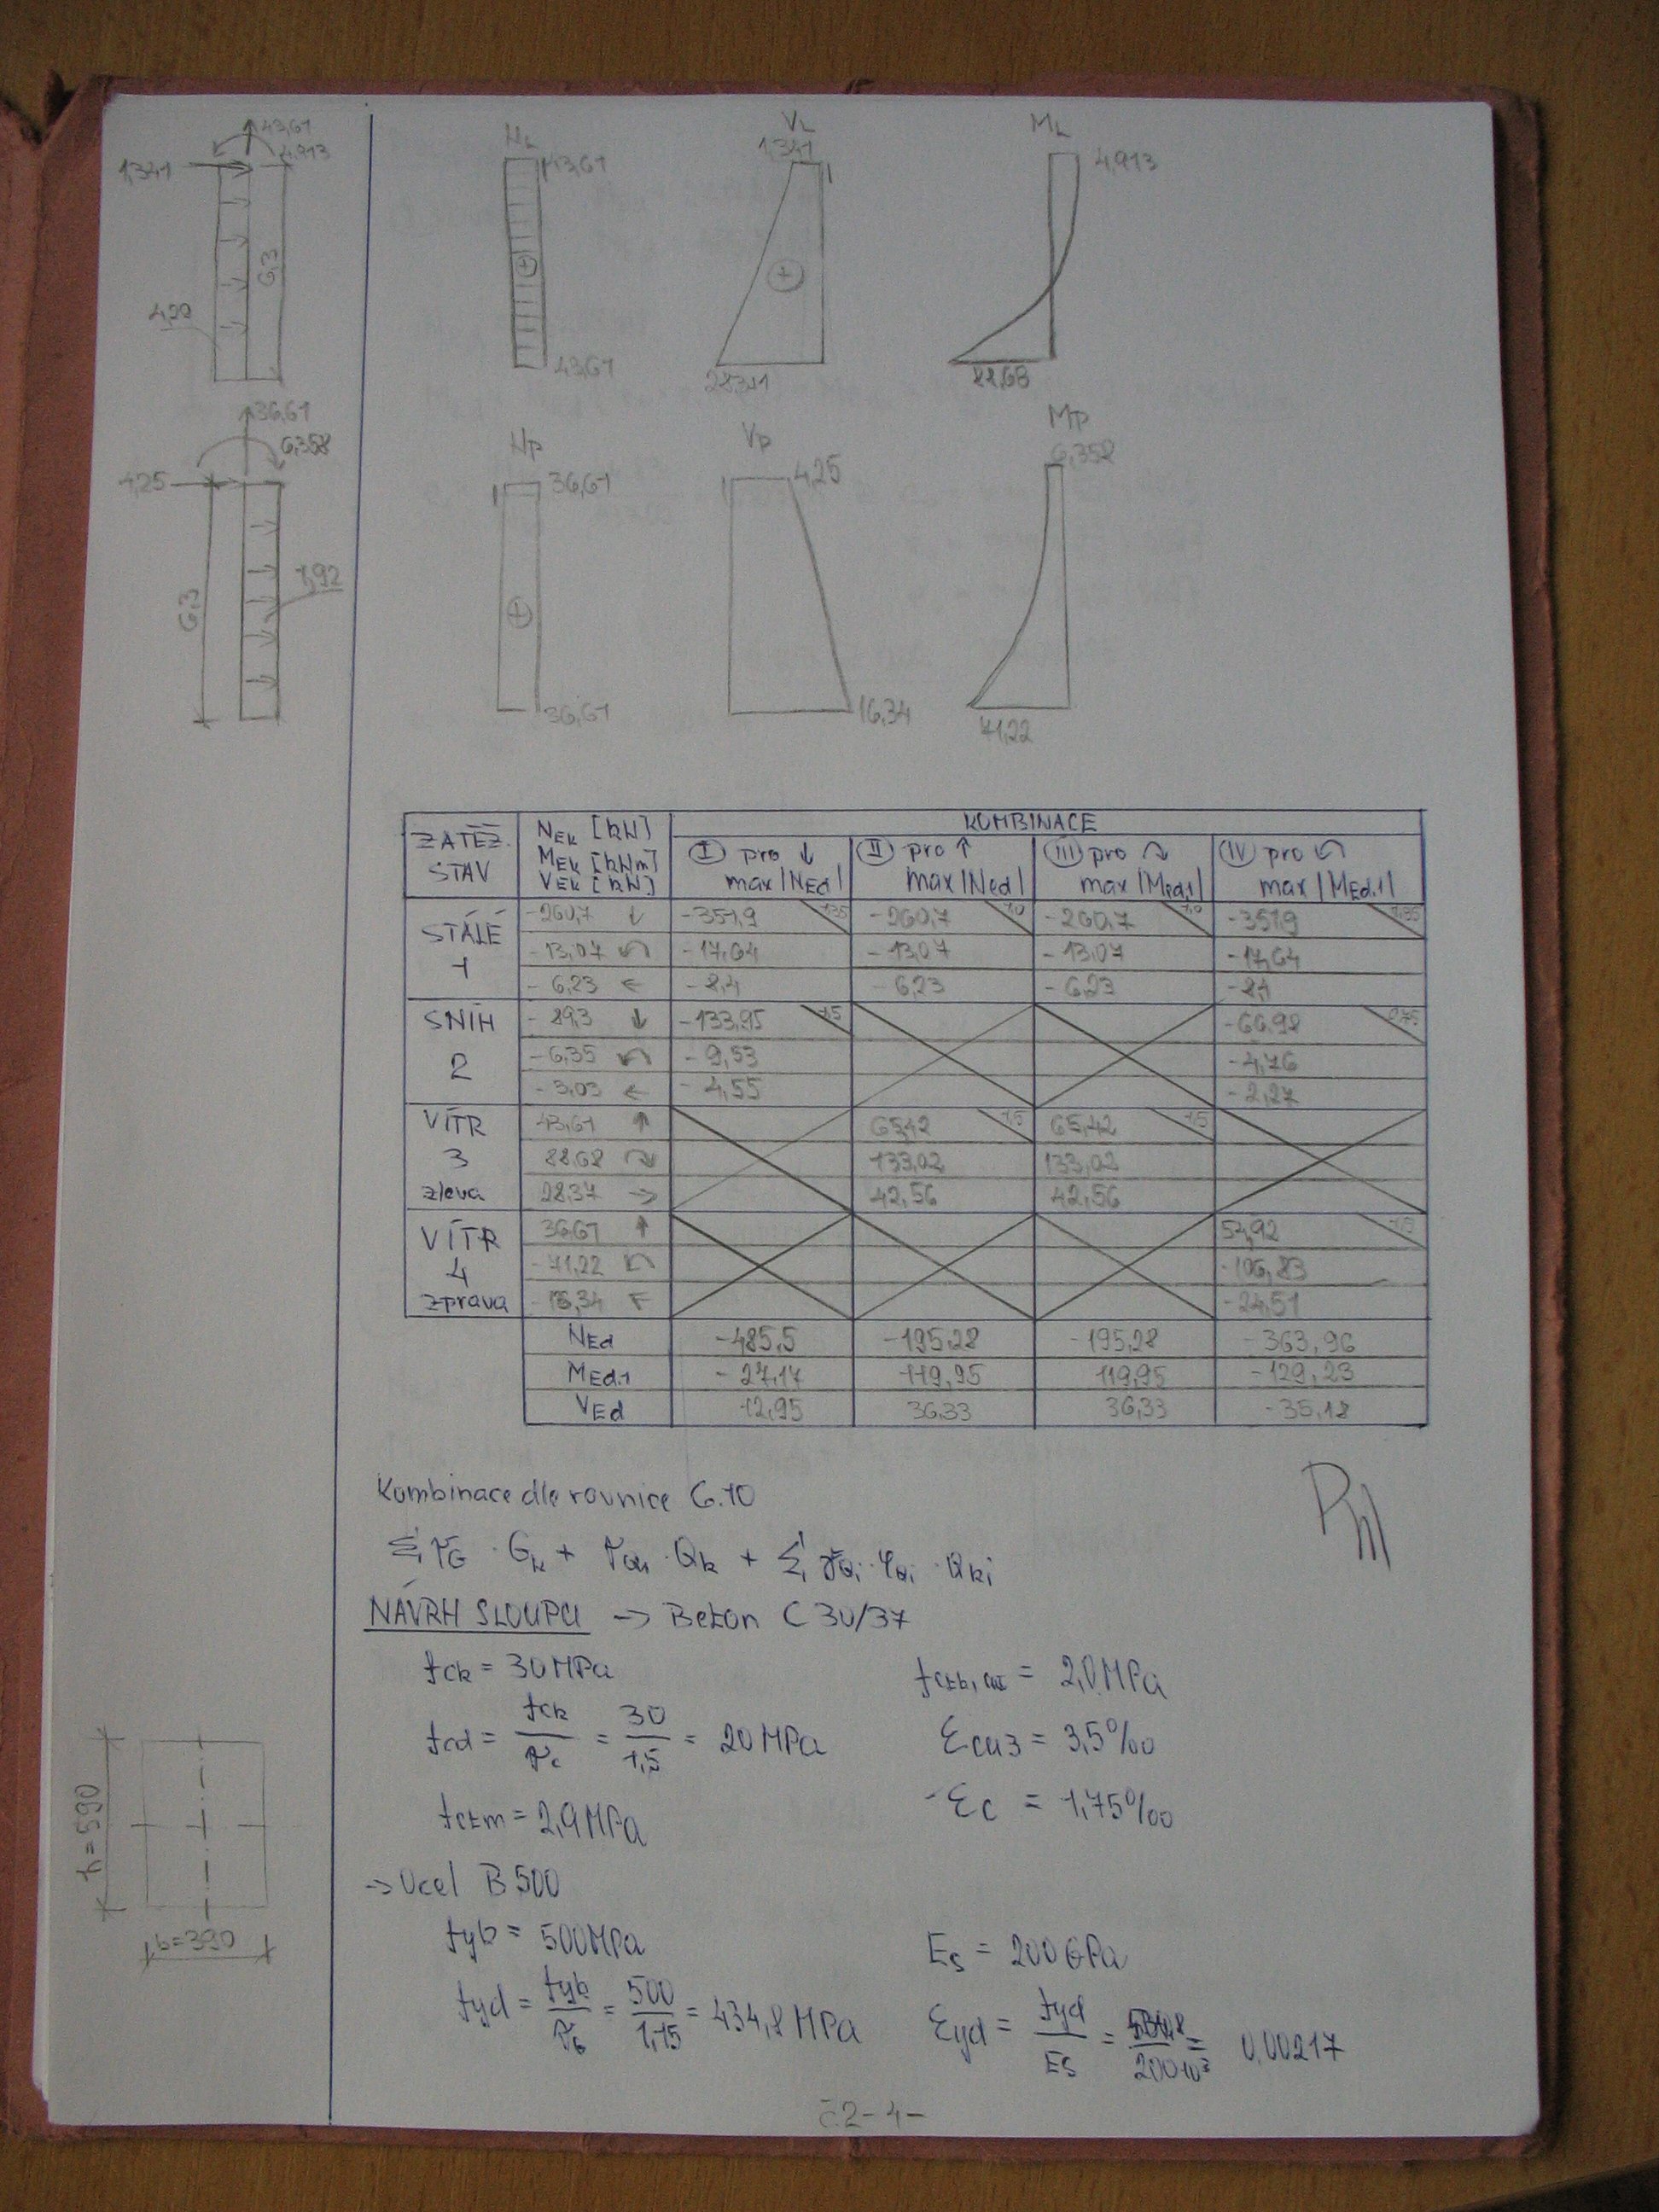 43,61
1,341
4,913
6,3
4,29
NL
43,61
43,61
VL
1,341
28,341
ML
4,913
88,68
36,61
6,358
4,25
6,3
1,92
NP
36,61
36,61
VP
4,25
16,34
MP
6,358
71,22
ZATĚŽ. STAV
NEk [kN]
MEk [kNm]
VEk [kN]
KOMBINACE
I pro ↓ max |NEd|
II pro ↑ max |NEd|
III pro ↷ max |MEd,1|
IV pro ↶ max |MEd,1|
STÁLÉ 1
-260,7 ↓ -351,9 1,35 -260,7 1,0 -260,7 1,0 -351,9 1,35
-13,07 ↶ -17,64 -13,07 -13,07 -17,64
-6,23 ← -8,4 -6,23 -6,23 -8,4
SNÍH 2
-89,3 ↓ -133,95 1,5 -66,98 0,75
-6,35 ↶ -9,53 -4,76
-3,03 ← -4,55 -2,27
VÍTR 3 zleva
43,61 ↑ 65,42 1,5 65,42 1,5
88,68 ↷ 133,02 133,02
28,37 → 42,56 42,56
VÍTR 4 zprava
36,61 ↑ 54,92 1,5
-71,22 ↶ -106,83
-16,34 ← -24,51
NEd -485,5 -195,28 -195,28 -363,96
MEd,1 -27,17 119,95 119,95 -129,23
VEd 12,95 36,33 36,33 -35,18
Kombinace dle rovnice 6.10
Σ γG · Gk + γQ1 · Qk + Σ γQi · ψ0i · Qki
NÁVRH SLOUPU → Beton C 30/37
fck = 30 MPa
fctk, = 2,0 MPa
fcd = fck / γc = 30 / 1,5 = 20 MPa
εcu3 = 3,5‰
fctm = 2,9 MPa
εc = 1,75‰
h = 590
b = 390
→ Ocel B 500
fyk = 500 MPa
Es = 200 GPa
fyd = fyk / γs = 500 / 1,15 = 434,8 MPa
εyd = fyd / Es = 434,8 / 200·10³ = 0,00217
č2-4-